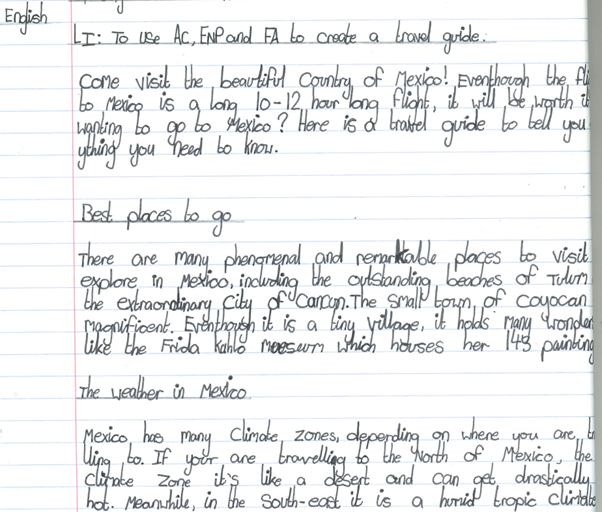 English
LI: To use AC, ENP and FA to create a travel guide.
Come visit the beautiful Country of Mexico! Eventhough the fli
to Mexico is a long 10-12 hour long flight, it will be worth it
wanting to go to Mexico? Here is a travel guide to tell you
ything you need to know.
Best places to go
There are many phenomenal and remarkable places to visit
explore in Mexico, including the outstanding beaches of Tulum
the extraordinary City of Cancun. The small town, of Coyocan
Magnificent. Eventhough it is a tiny village, it holds many wonder
like the Frida Kahlo which houses her 143 painting
The weather in Mexico
Mexico has many Climate zones, depending on where you are, tr
lling to. If your are travelling to the North of Mexico, the
climate zone it's like a desert and can get drastically
hot. Meanwhile, in the South-east it is a humid tropic climate